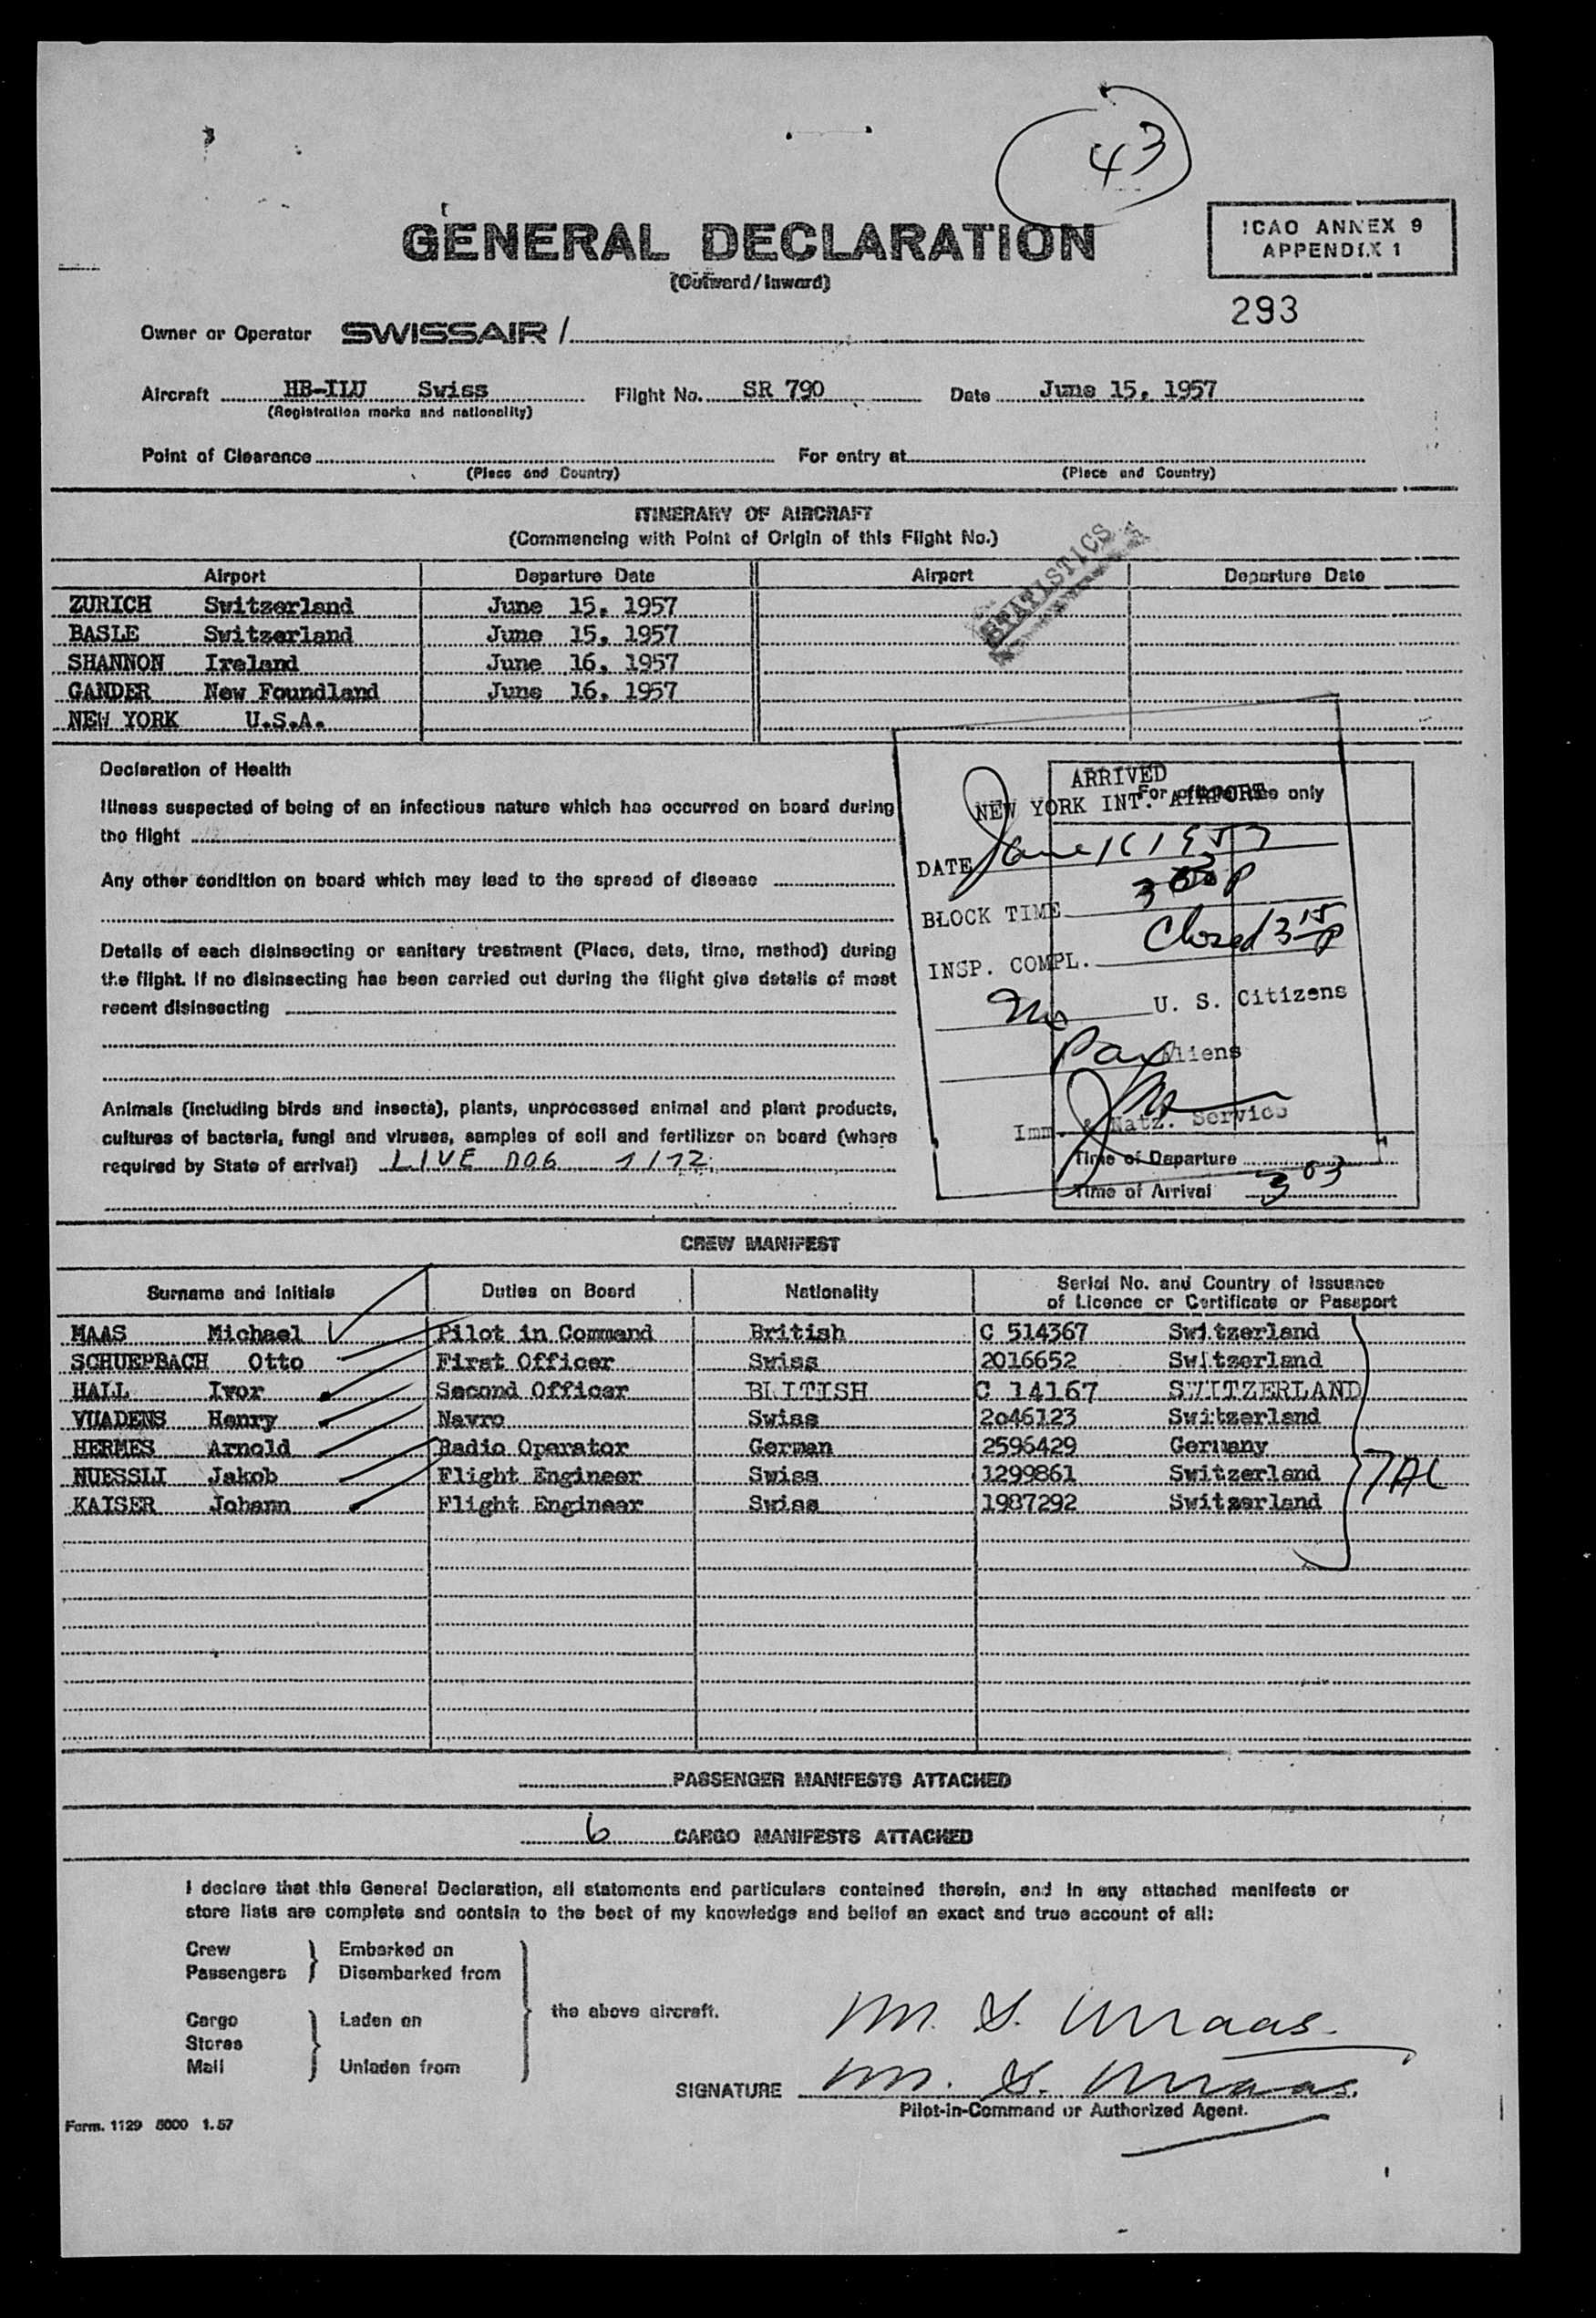 43
GENERAL DECLARATION
(Outward/Inward)
ICAO ANNEX 9
APPENDIX 1
293
Owner or Operator SWISSAIR /
Aircraft HB-ILU Swiss Flight No. SR 790 Date June 15, 1957
(Registration marks and nationality)
Point of Clearance For entry at
(Place and Country) (Place and Country)
ITINERARY OF AIRCRAFT
(Commencing with Point of Origin of this Flight No.)
STATISTICS
Airport Departure Date Airport Departure Date
ZURICH Switzerland June 15, 1957
BASLE Switzerland June 15, 1957
SHANNON Ireland June 16, 1957
GANDER New Foundland June 16, 1957
NEW YORK U.S.A.
Declaration of Health
Illness suspected of being of an infectious nature which has occurred on board during
the flight
Any other condition on board which may lead to the spread of disease
Details of each disinsecting or sanitary treatment (Place, date, time, method) during
the flight. If no disinsecting has been carried out during the flight give details of most
recent disinsecting
Animals (including birds and insects), plants, unprocessed animal and plant products,
cultures of bacteria, fungi and viruses, samples of soil and fertilizer on board (where
required by State of arrival) LIVE DOG 1/12
For official use only
ARRIVED
NEW YORK INT. AIRPORT
DATE June 16 1957
BLOCK TIME 303 P
INSP. COMPL. Closed 3 15 P
No U. S. Citizens
Pax Aliens
Imm. & Natz. Service
Time of Departure
Time of Arrival 3 03
CREW MANIFEST
Surname and Initials Duties on Board Nationality Serial No. and Country of Issuance
of Licence or Certificate or Passport
MAAS Michael Pilot in Command British C 514367 Switzerland
SCHUEPBACH Otto First Officer Swiss 2016652 Switzerland
HALL Ivor Second Officer BRITISH C 14167 SWITZERLAND
VUADENS Henry Navro Swiss 2o46123 Switzerland
HERMES Arnold Radio Operator German 2596429 Germany
NUESSLI Jakob Flight Engineer Swiss 1299861 Switzerland
KAISER Johann Flight Engineer Swiss 1987292 Switzerland
PASSENGER MANIFESTS ATTACHED
6 CARGO MANIFESTS ATTACHED
I declare that this General Declaration, all statements and particulars contained therein, and in any attached manifests or
store lists are complete and contain to the best of my knowledge and belief an exact and true account of all:
Crew Embarked on
Passengers Disembarked from
the above aircraft.
Cargo Laden on
Stores
Mail Unladen from
M. S. Maas
SIGNATURE M. S. Maas
Pilot-in-Command or Authorized Agent.
Form. 1129 5000 1.57